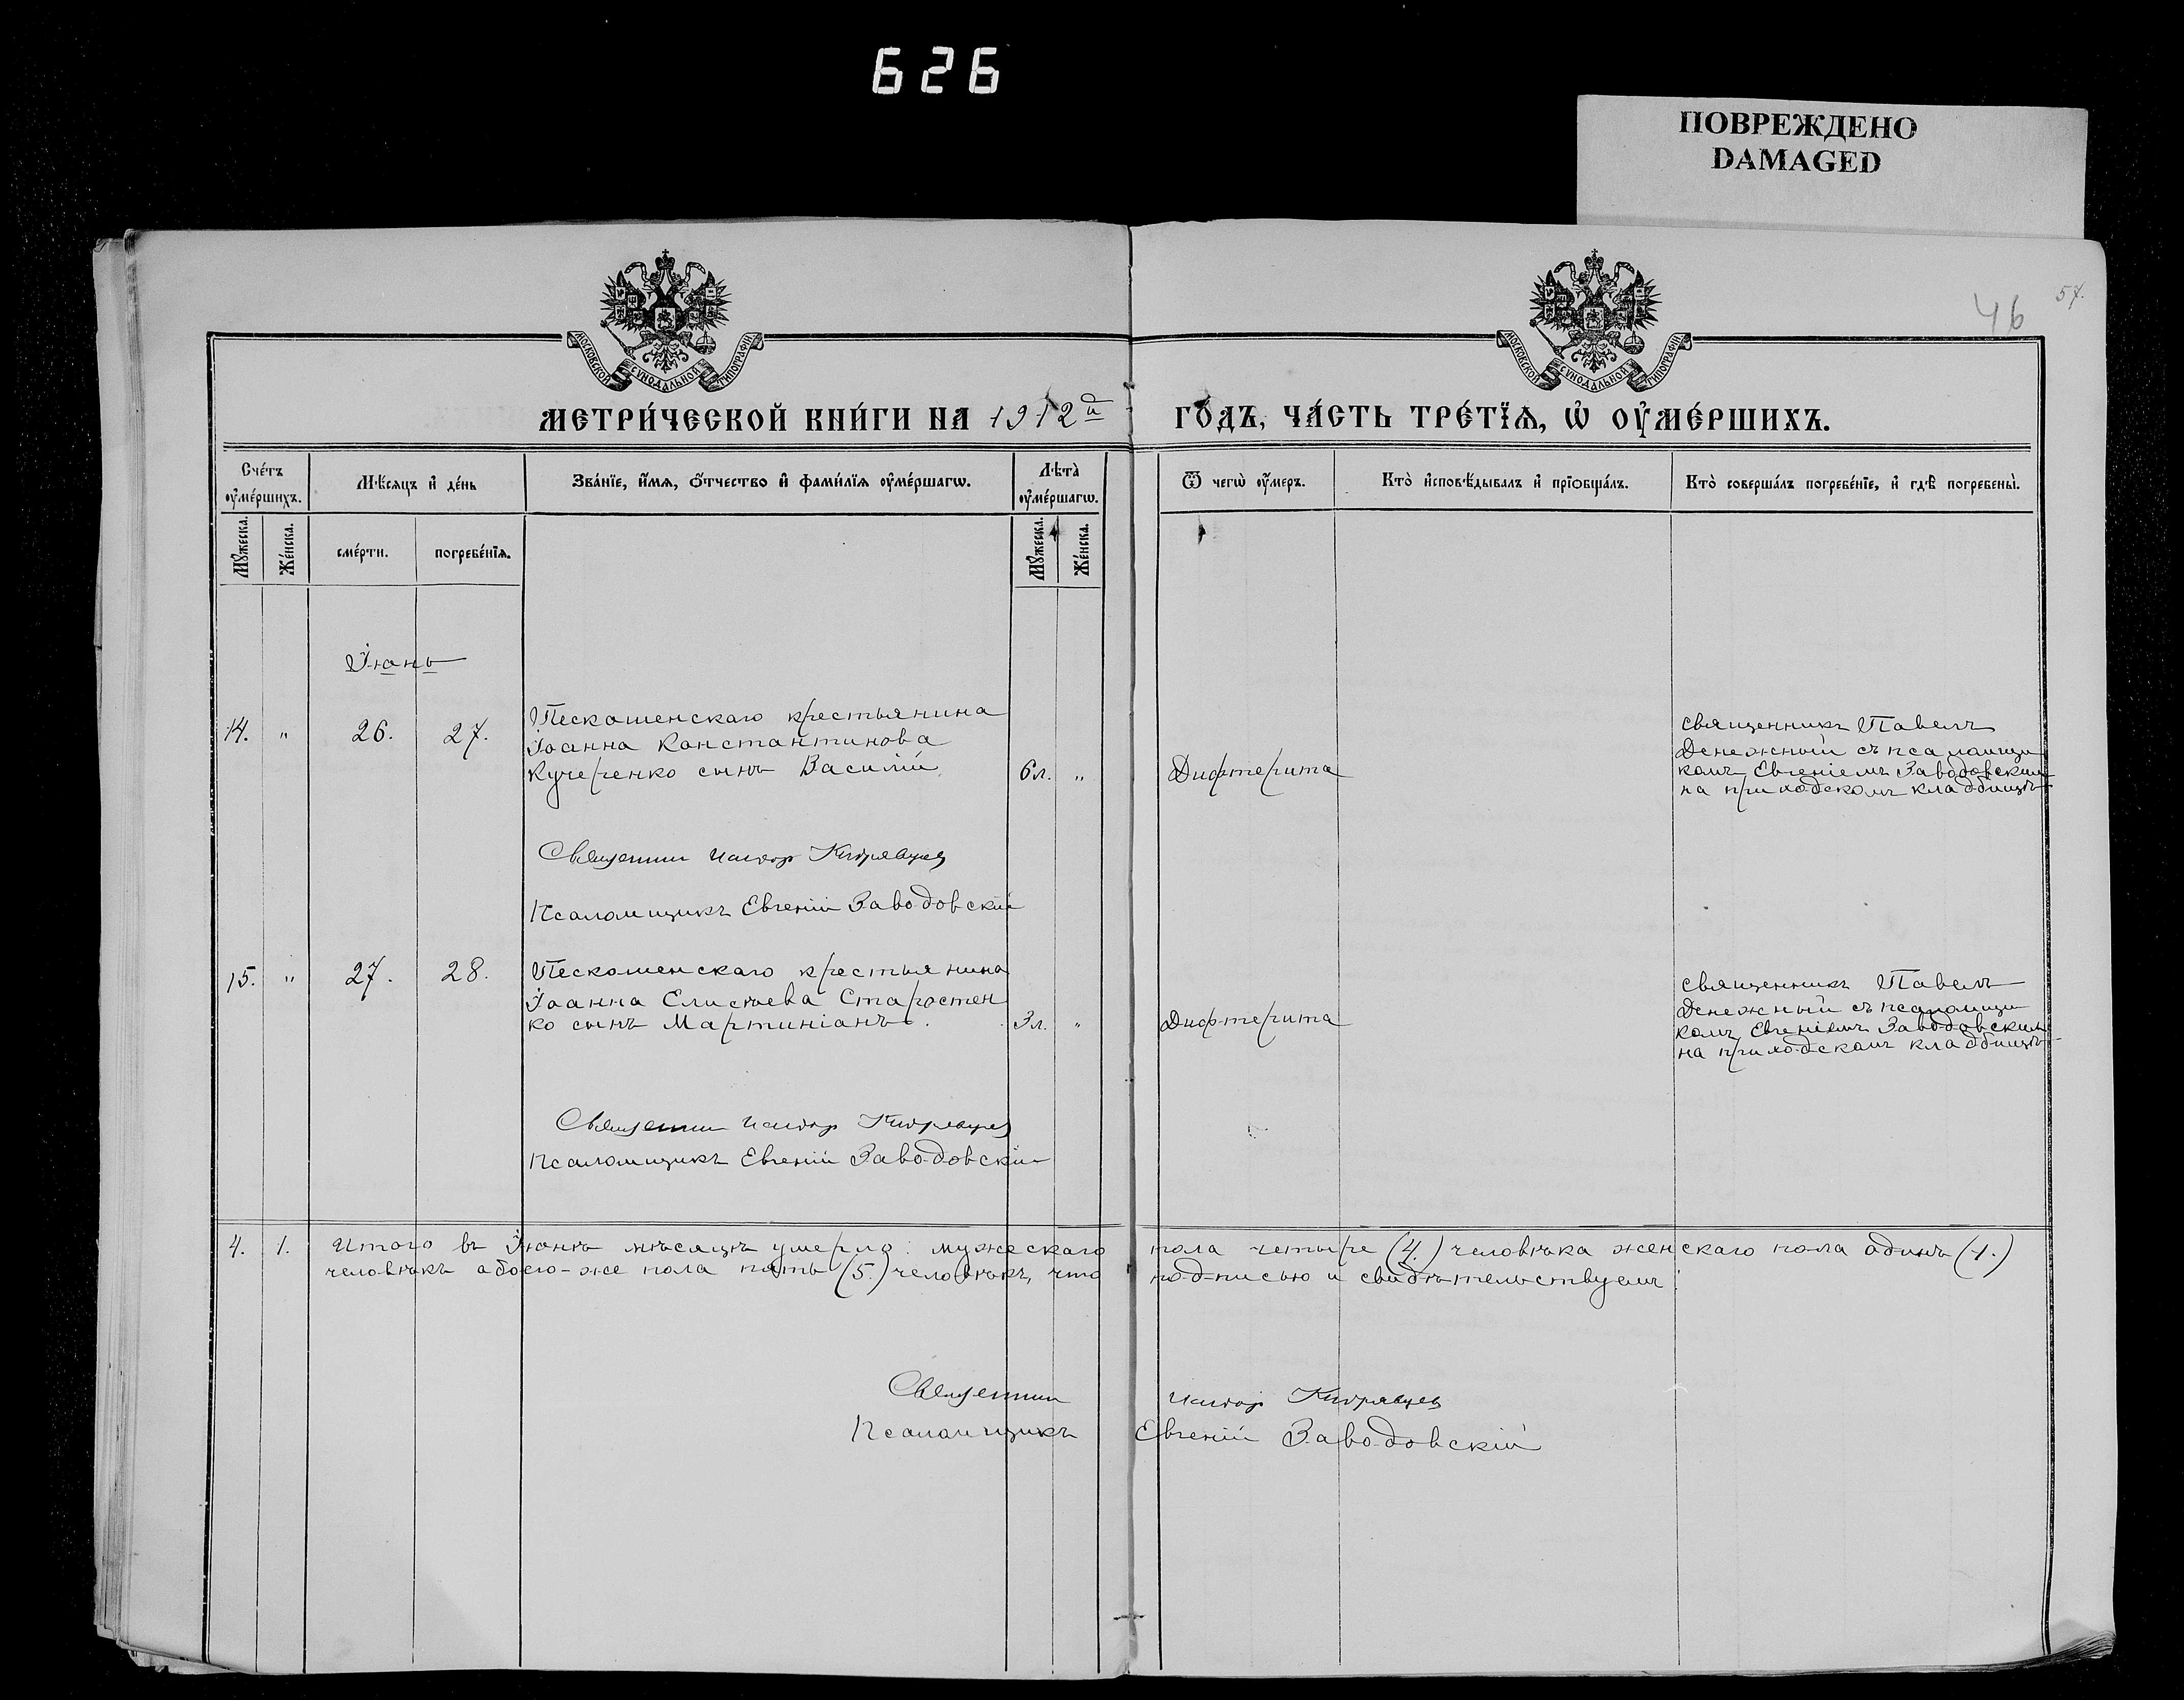 626
ПОВРЕЖДЕНО
DAMAGED
46
57.
МОСКОВСКОЙ СѴНОДАЛЬНОЙ ТИПОГРАФІИ
МОСКОВСКОЙ СѴНОДАЛЬНОЙ ТИПОГРАФІИ
МЕТРИ́ЧЕСКОЙ КНИ́ГИ НА 1912й ГО́ДЪ, ЧА́СТЬ ТРЕ́ТЇѦ, Ѡ҆ ОУ҆МЕ́РШИХЪ.
Сче́тъ оу҆ме́ршихъ.
Мѣ́сяцъ и҆ де́нь
Зва́нїе, и҆́мя, ѻ҆́тчество и҆ фами́лїя оу҆ме́ршагѡ.
Лѣта̀ оу҆ме́ршагѡ.
Ѿ чегѡ̀ оу҆́меръ.
Кто̀ и҆сповѣ́дывалъ и҆ прїѡбща́лъ.
Кто̀ соверша́лъ погребе́нїе, и҆ гдѣ̀ погребены̀.
Мꙋ́жеска.
Же́нска.
сме́рти.
погребе́нїѧ.
Мꙋ́жеска.
Же́нска.
Іюнь
14. " 26. 27. Пескошенскаго крестьянина
Іоанна Константинова
Кучеренко сынъ Василій 6 л. " Дифтерита
священникъ Павелъ
Денежный съ псаломщи
комъ Евгеніемъ Заводовскимъ
на приходскомъ кладбищѣ
Священник Исидор Кудрявцев
Псаломщикъ Евгеній Заводовскій
15. " 27. 28. Пескошенскаго крестьянина
Іоанна Елисѣева Старостен
ко сынъ Мартиніанъ. 3 л. " Дифтерита
священникъ Павелъ
Денежный съ псаломщи
комъ Евгеніемъ Заводовскимъ
на приходскомъ кладбищѣ
Священник Исидор Кудрявцев
Псаломщикъ Евгеній Заводовскій
4. 1. Итого въ Іюнѣ мѣсяцѣ умерло: мужескаго пола четыре (4.) человѣка женскаго пола одинъ (1.)
человѣкъ а обоего-же пола пять (5.) человѣкъ, что подписью и свидѣтельствуемъ:
Священник Исидор Кудрявцев
Псаломщикъ Евгеній Заводовскій